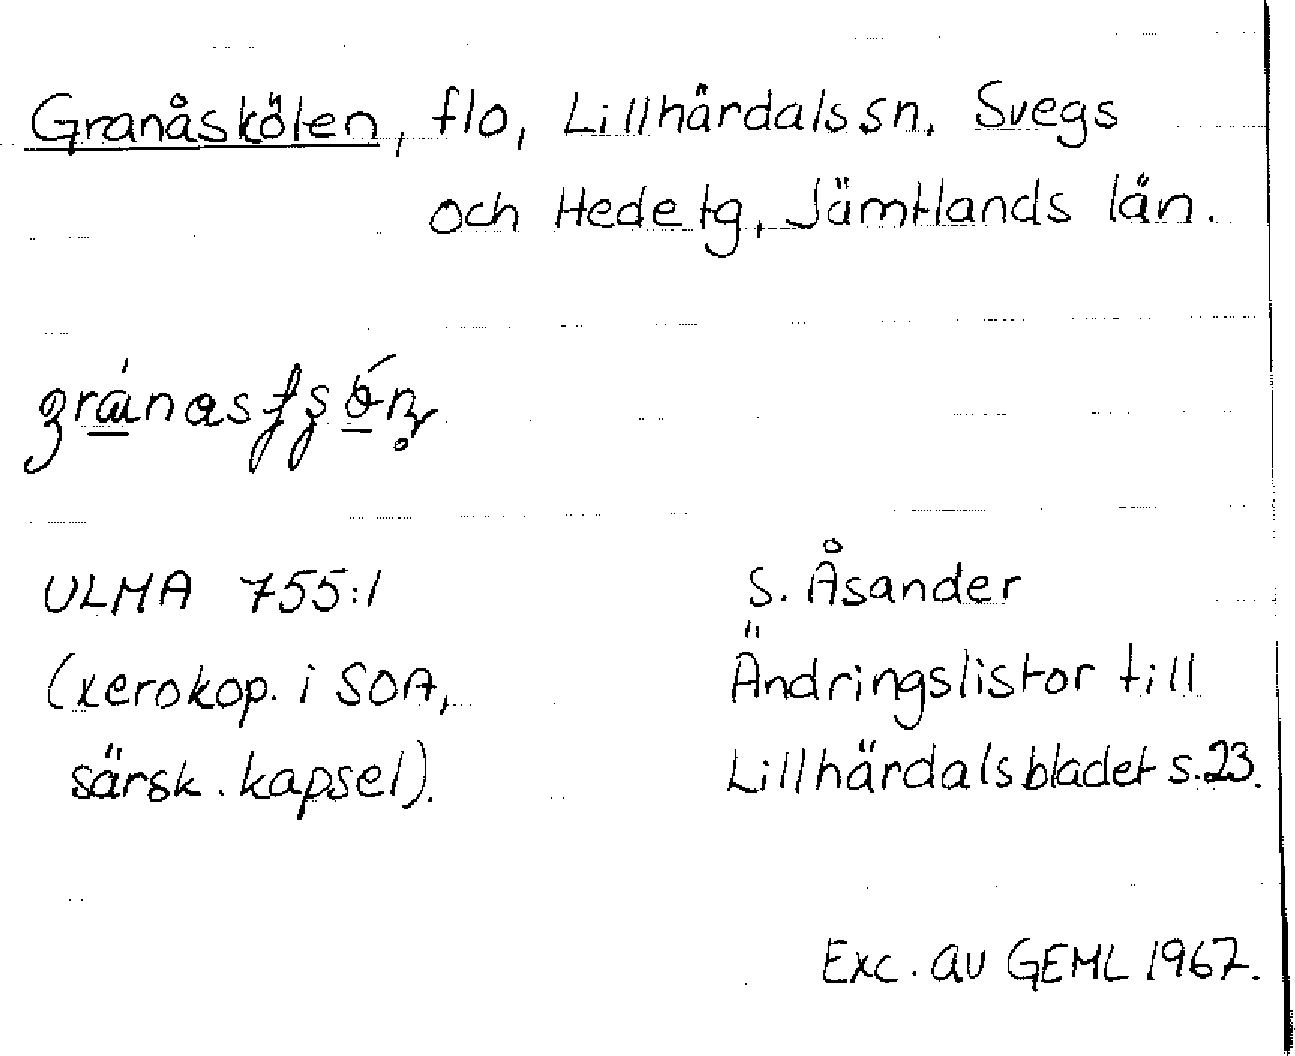 Granåskölen, flo, Lillhärdals sn, Svegs
och Hede tg, Jämtlands län.
ULMA 755:1
(xerokop. i SOA,
särsk. kapsel).
S. Åsander
Ändringslistor till
Lillhärdalsbladet s. 23.
Exc. av GEML 1967.